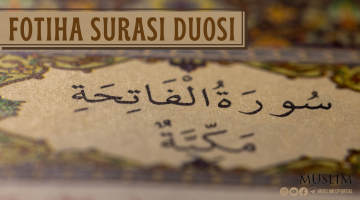 FOTIHA SURASI DUOSI
سُورَةُ الْفَاتِحَةِ
مَكِّيَّةٌ
MUSLIM